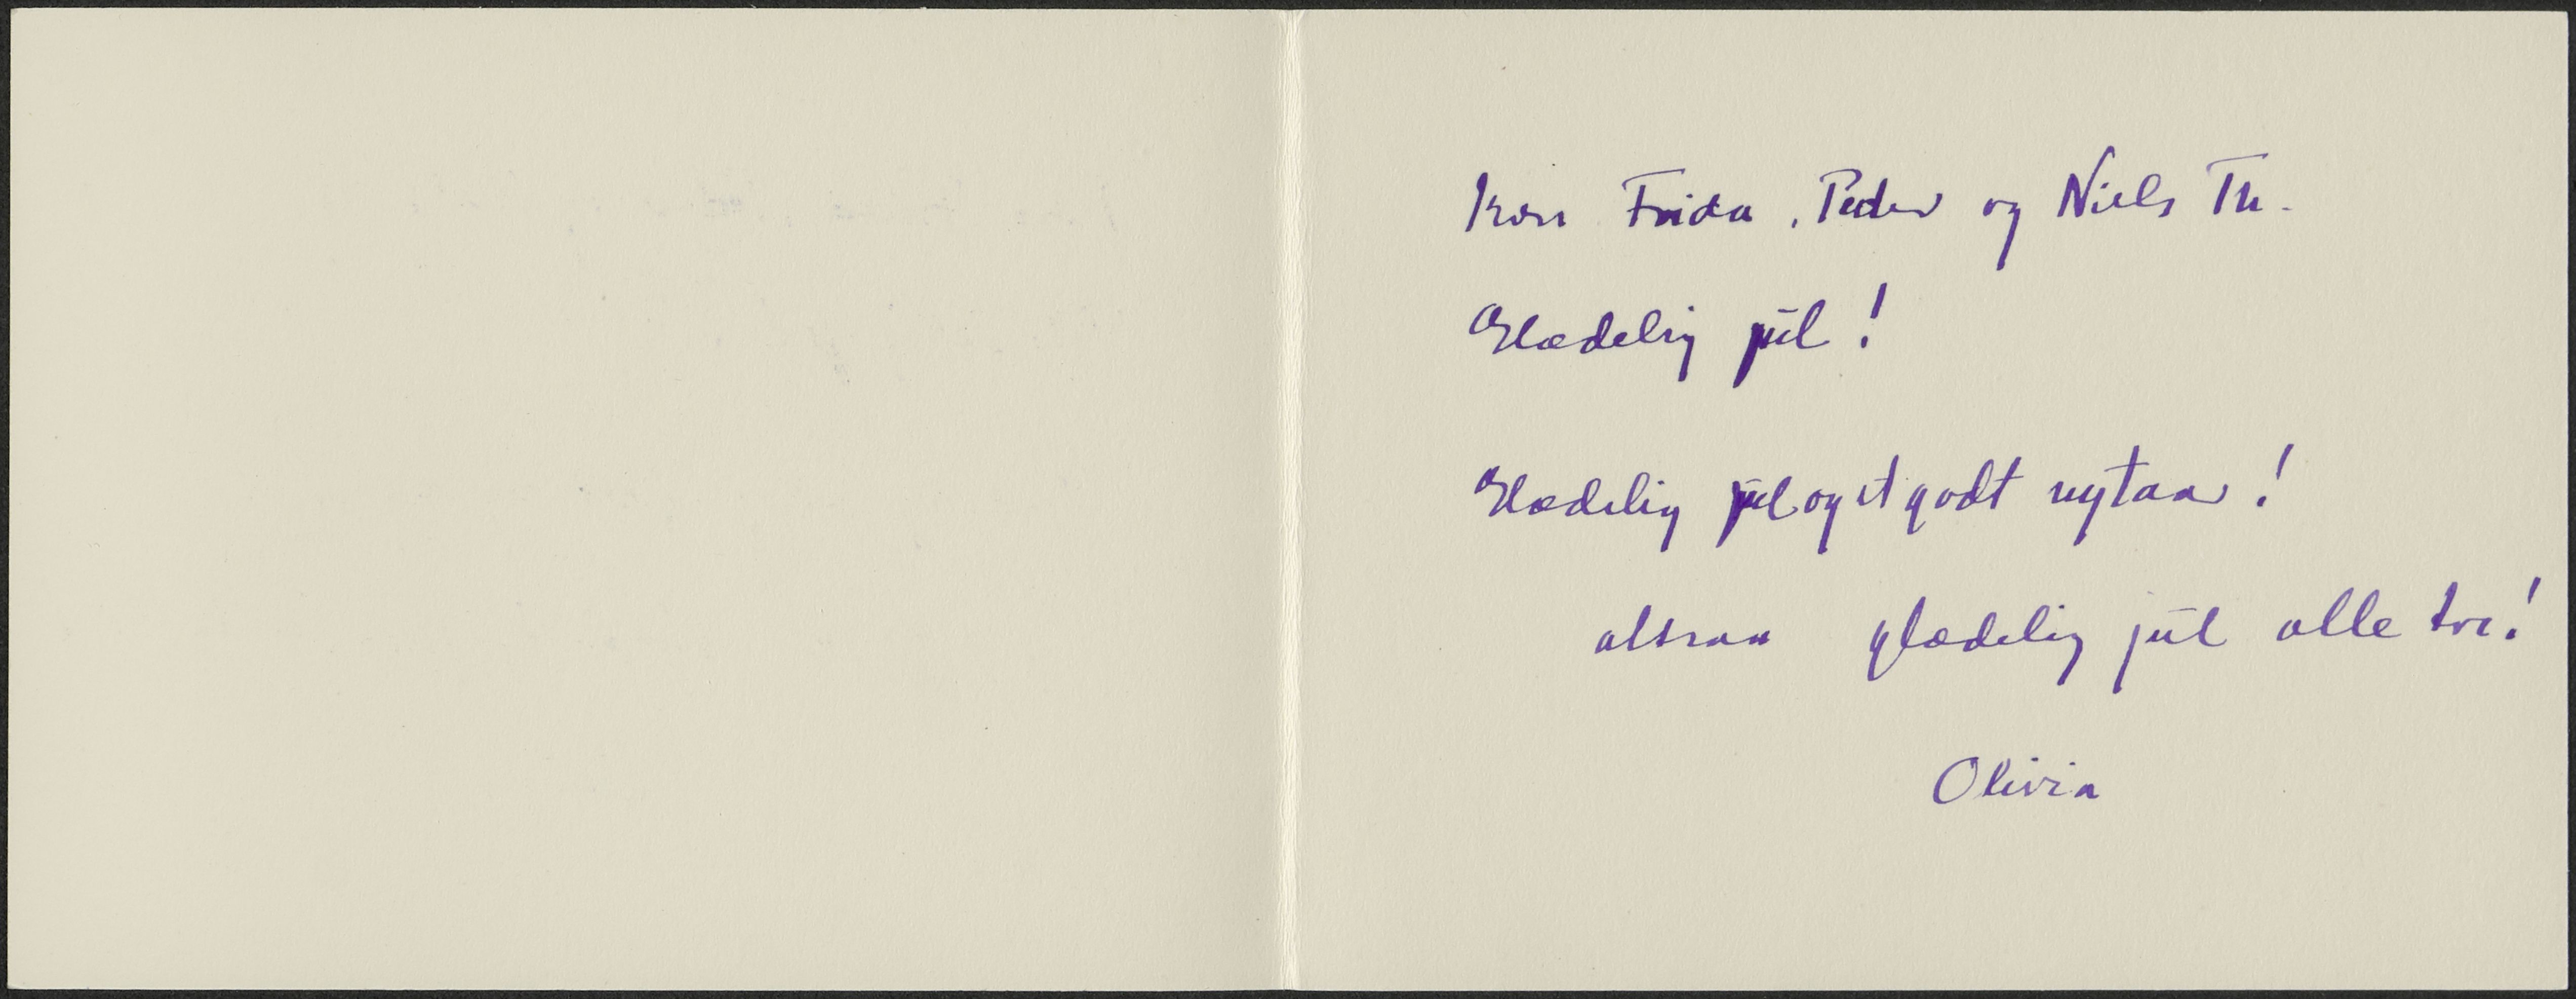 Kære Frida, Peder og Niels Th.
Glædelig jul!
Glædelig jul og et godt nytaar!
altsaa glædelig jul alle tre!
Olivia